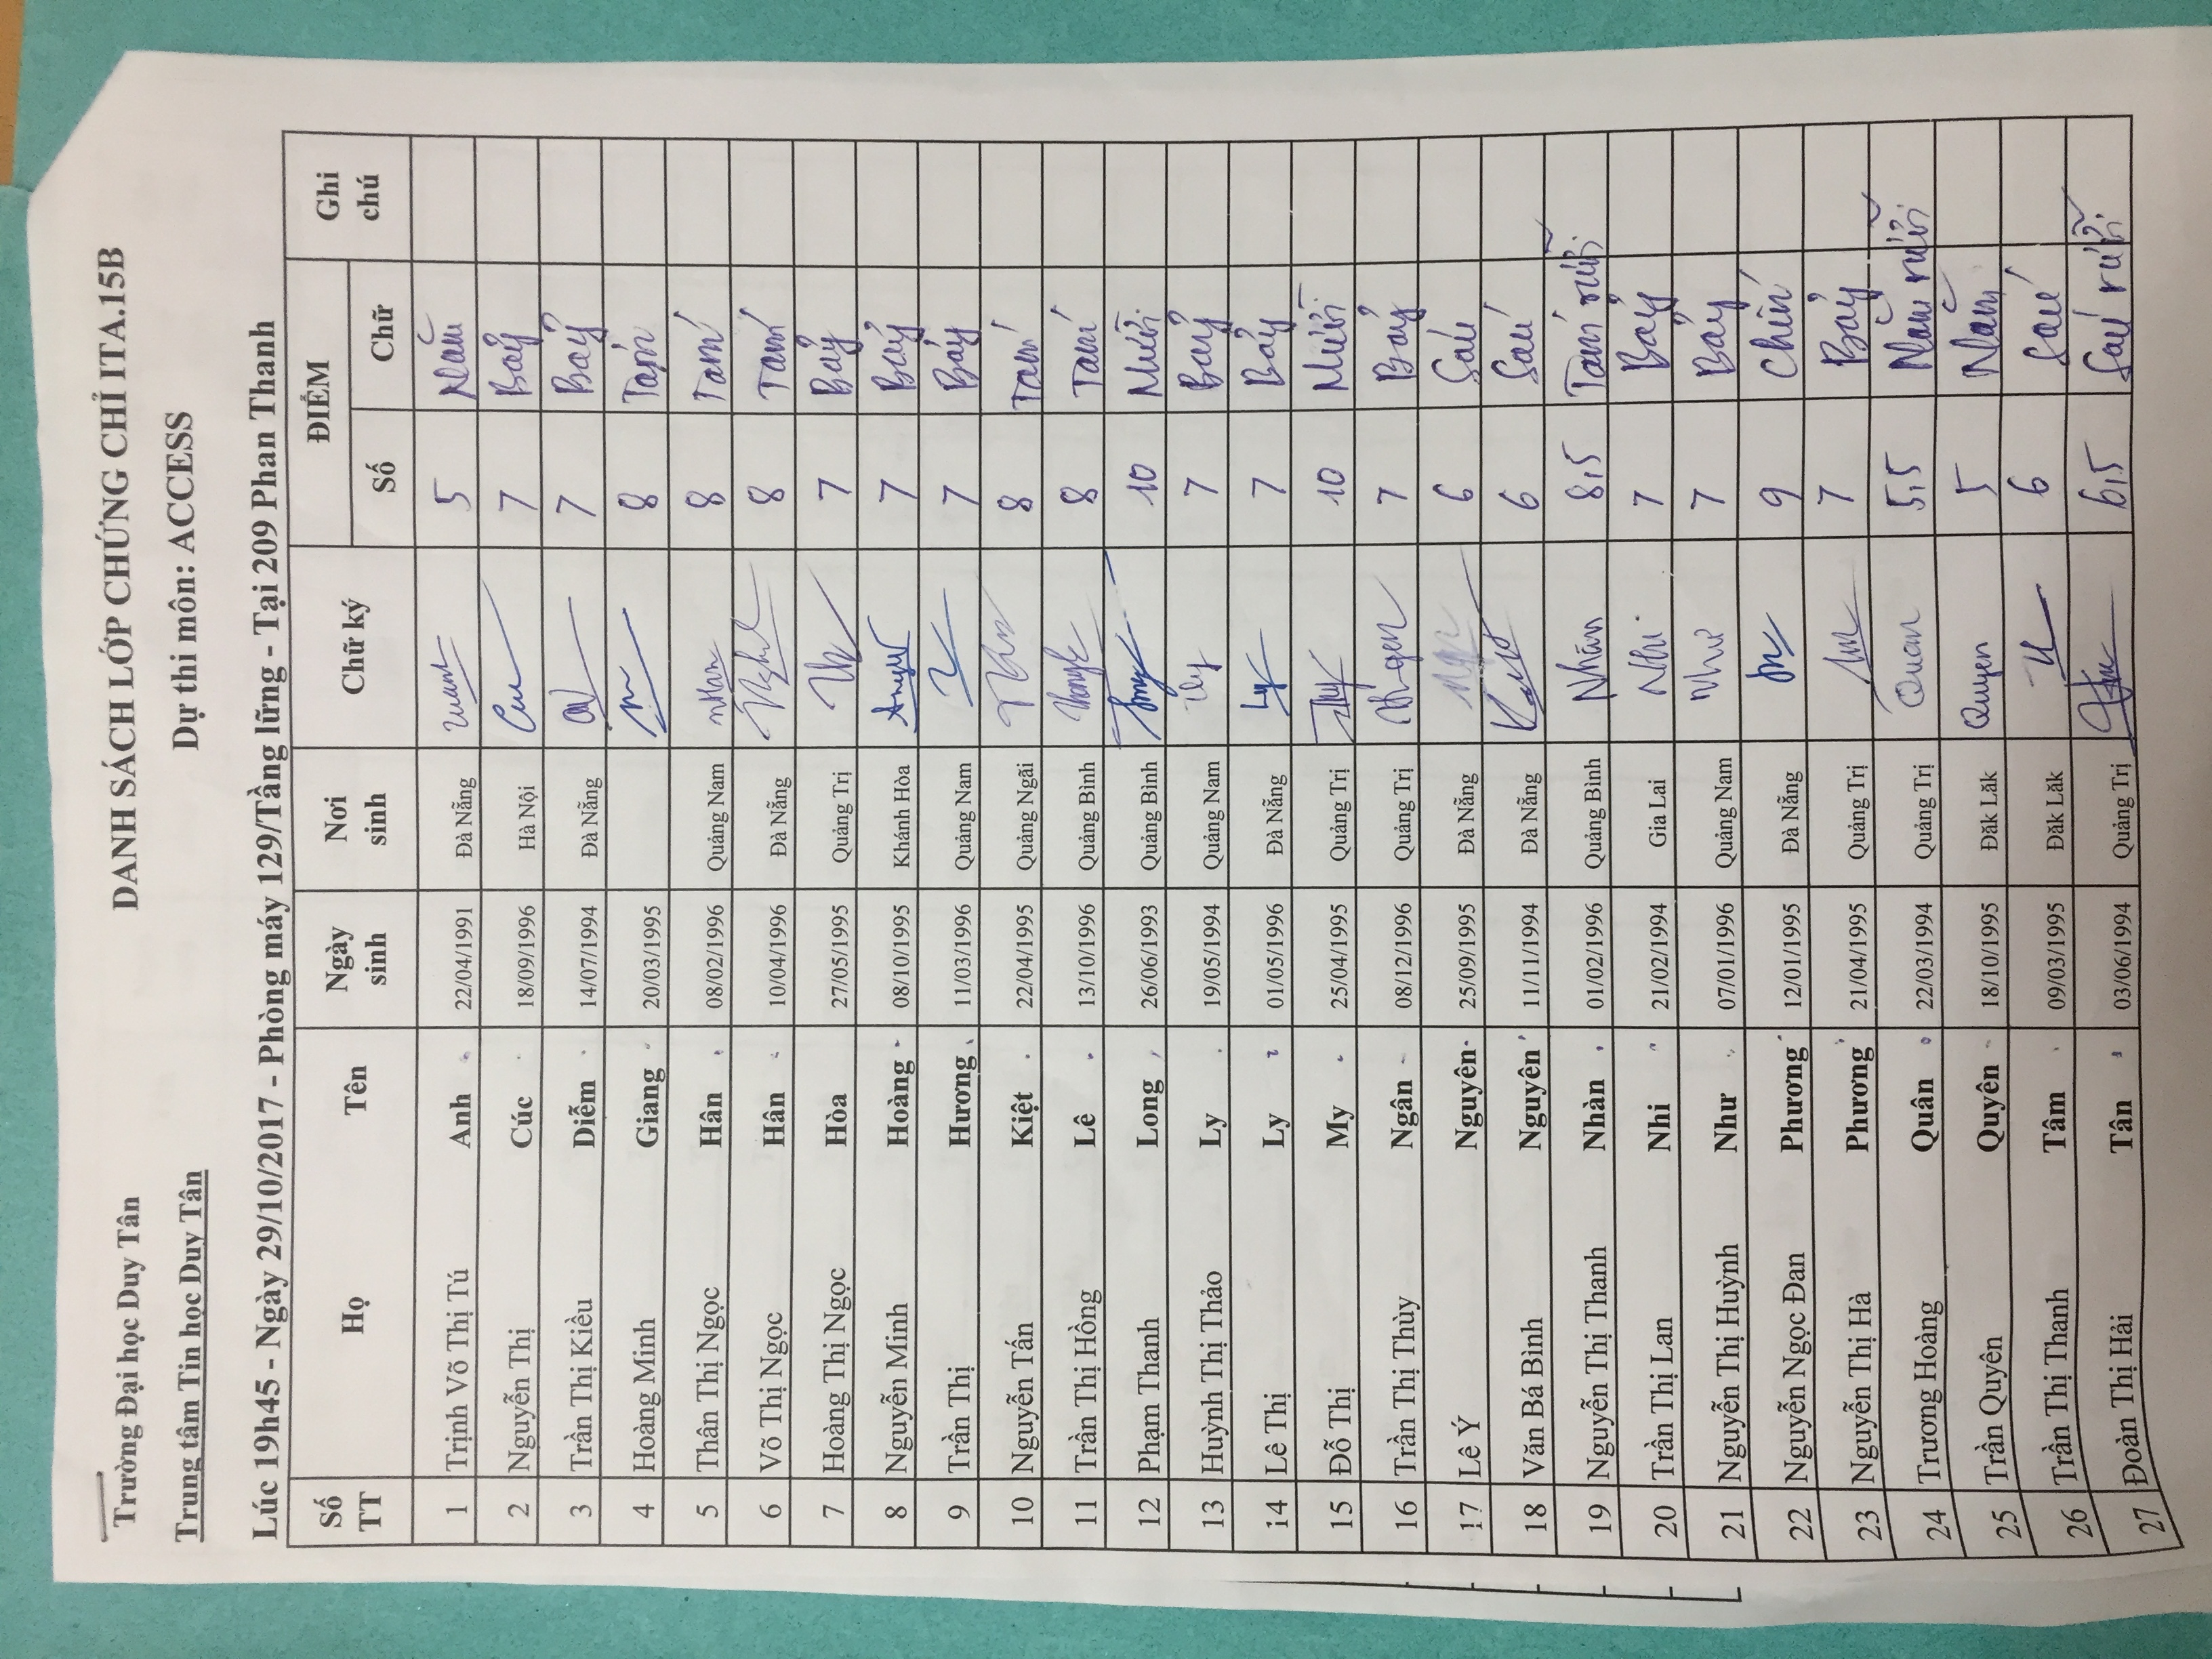 Trường Đại học Duy Tân DANH SÁCH LỚP CHỨNG CHỈ ITA.15B
Trung tâm Tin học Duy Tân Dự thi môn: ACCESS
Lúc 19h45 - Ngày 29/10/2017 - Phòng máy 129/Tầng lửng - Tại 209 Phan Thanh
Số TT Họ Tên Ngày sinh Nơi sinh Chữ ký ĐIỂM Ghi chú
Số Chữ
1 Trịnh Võ Thị Tú Anh 22/04/1991 Đà Nẵng 5 Năm
2 Nguyễn Thị Cúc 18/09/1996 Hà Nội 7 Bảy
3 Trần Thị Kiều Diễm 14/07/1994 Đà Nẵng 7 Bảy
4 Hoàng Minh Giang 20/03/1995 8 Tám
5 Thân Thị Ngọc Hân 08/02/1996 Quảng Nam 8 Tám
6 Võ Thị Ngọc Hân 10/04/1996 Đà Nẵng 8 Tám
7 Hoàng Thị Ngọc Hòa 27/05/1995 Quảng Trị 7 Bảy
8 Nguyễn Minh Hoàng 08/10/1995 Khánh Hòa 7 Bảy
9 Trần Thị Hương 11/03/1996 Quảng Nam 7 Bảy
10 Nguyễn Tấn Kiệt 22/04/1995 Quảng Ngãi 8 Tám
11 Trần Thị Hồng Lê 13/10/1996 Quảng Bình 8 Tám
12 Phạm Thanh Long 26/06/1993 Quảng Bình 10 Mười
13 Huỳnh Thị Thảo Ly 19/05/1994 Quảng Nam Ly 7 Bảy
14 Lê Thị Ly 01/05/1996 Đà Nẵng Ly 7 Bảy
15 Đỗ Thị My 25/04/1995 Quảng Trị 10 Mười
16 Trần Thị Thùy Ngân 08/12/1996 Quảng Trị 7 Bảy
17 Lê Ý Nguyên 25/09/1995 Đà Nẵng 6 Sáu
18 Văn Bá Bình Nguyên 11/11/1994 Đà Nẵng 6 Sáu
19 Nguyễn Thị Thanh Nhàn 01/02/1996 Quảng Bình Nhàn 8,5 Tám rưỡi
20 Trần Thị Lan Nhi 21/02/1994 Gia Lai Nhi 7 Bảy
21 Nguyễn Thị Huỳnh Như 07/01/1996 Quảng Nam Như 7 Bảy
22 Nguyễn Ngọc Đan Phương 12/01/1995 Đà Nẵng 9 Chín
23 Nguyễn Thị Hà Phương 21/04/1995 Quảng Trị 7 Bảy
24 Trương Hoàng Quân 22/03/1994 Quảng Trị Quan 5,5 Năm rưỡi
25 Trần Quyên Quyên 18/10/1995 Đăk Lăk Quyen 5 Năm
26 Trần Thị Thanh Tâm 09/03/1995 Đăk Lăk 6 Sáu
27 Đoàn Thị Hải Tân 03/06/1994 Quảng Trị 6,5 Sáu rưỡi